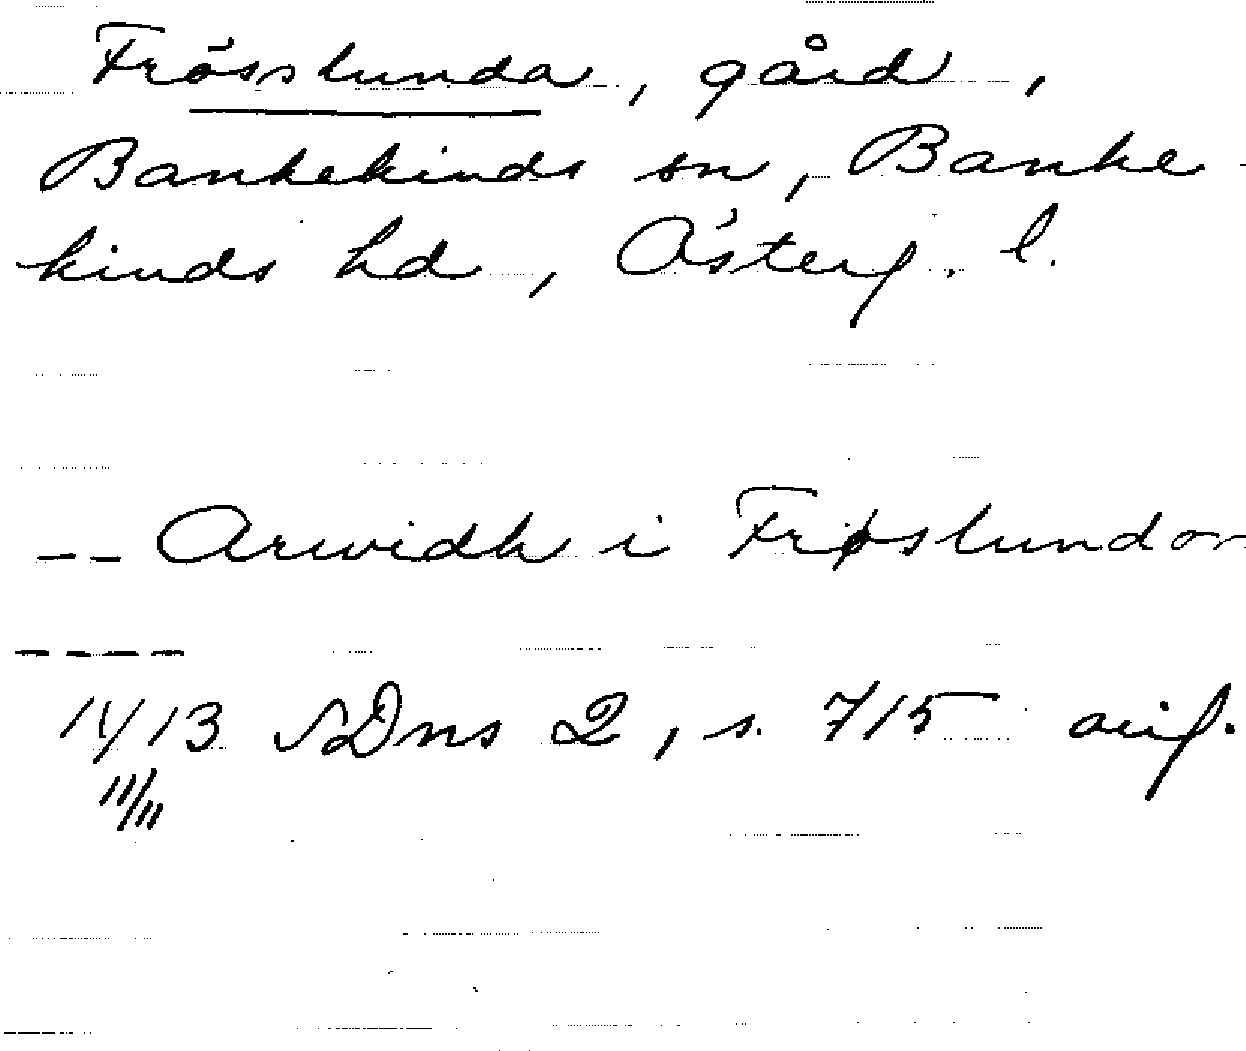 Frösslunda, gård,
Bankekinds sn, Banke-
kinds hd, Österg. l.
-- Arwidh i Frøslundom
----
1413 SDns 2, s. 715 avif.
11/11